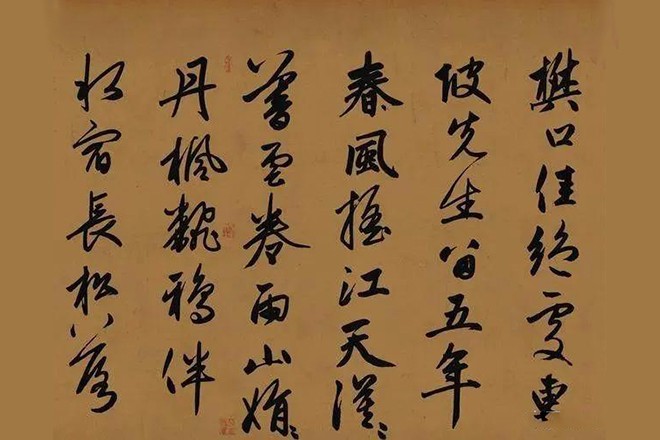 樊口佳絶處東
坡先生留五年
春風搖江天漠〻
暮雲卷雨山娟〻
丹楓翻鴉伴
水宿長松落